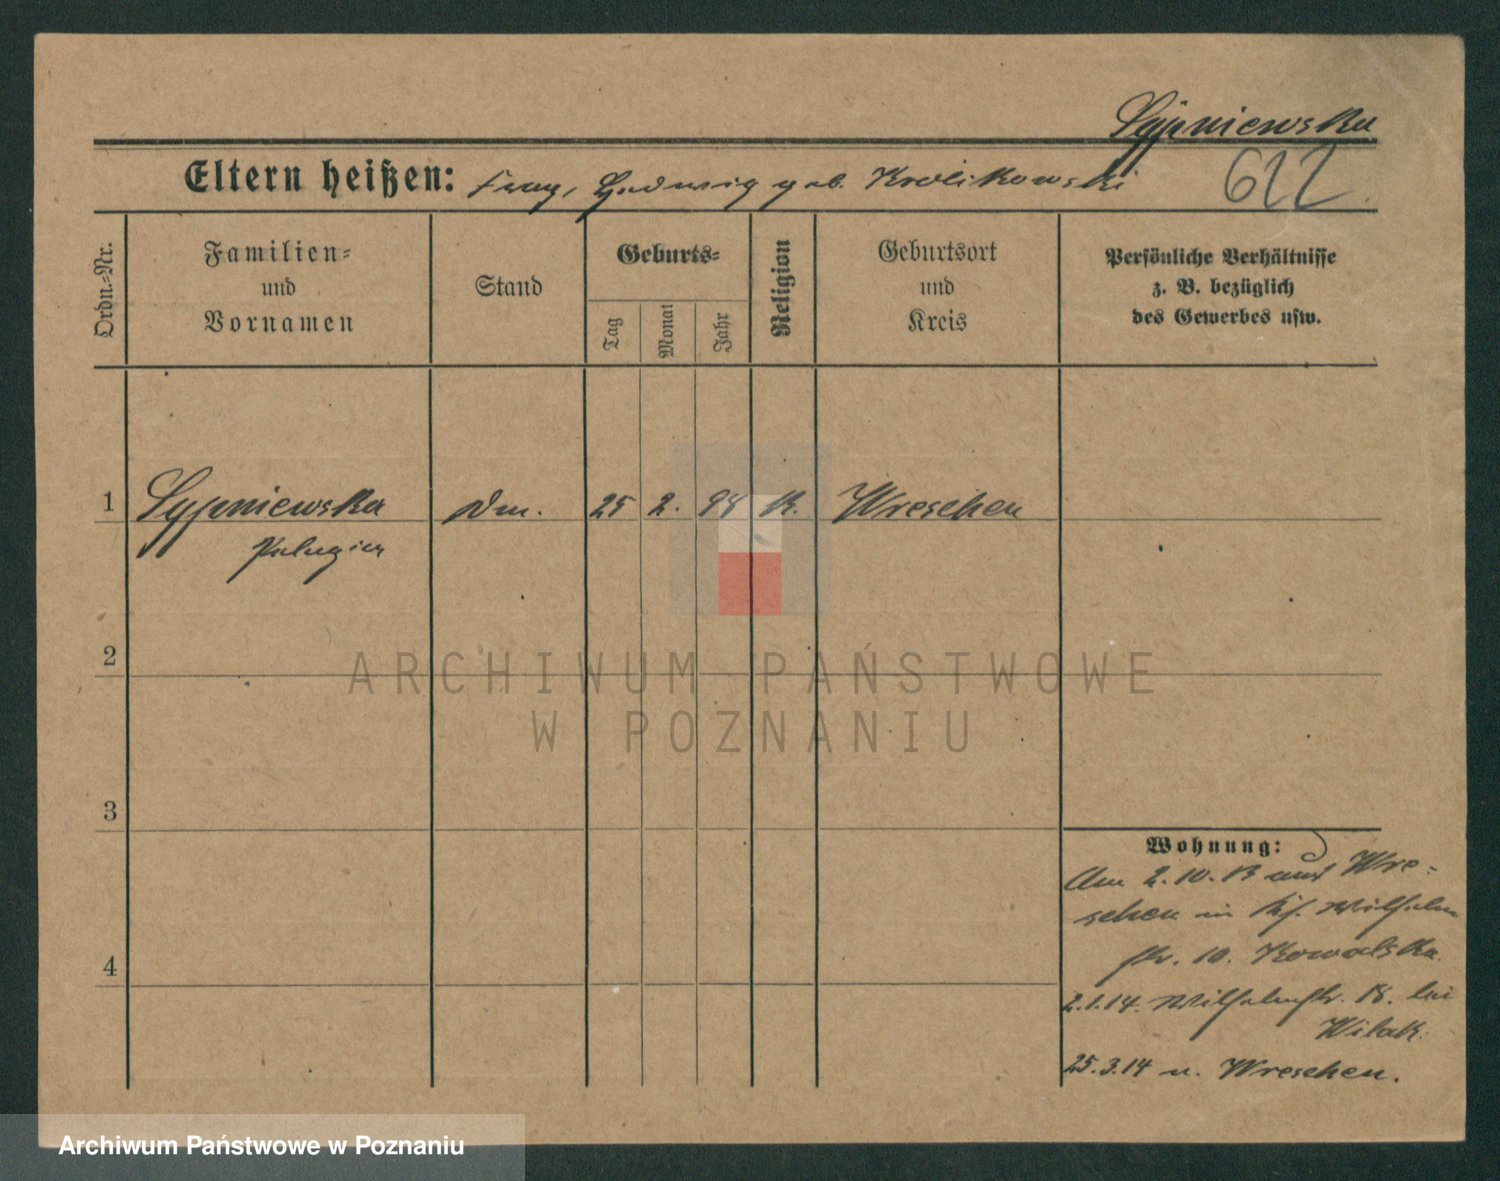 Sypniewska
Eltern heißen: Franz, Ludwig geb. Krolikowski
622
Ordn.-Nr.
Familien-
und
Vornamen
Stand
Geburts-
Tag
Monat
Jahr
Religion
Geburtsort
und
Kreis
Persönliche Verhältnisse
z. B. bezüglich
des Gewerbes usw.
1 Sypniewska Dm. 25 2. 98 K. Wreschen
Pelagia
2
3
4
Wohnung:
Am 2.10.13 aus Wre-
schen in Wilhelm
str. 10. Kowalska.
2.1.14. Wilhelmstr. 18. bei
Wilak.
25.3.14 n. Wreschen.
ARCHIWUM PAŃSTWOWE
W POZNANIU
Archiwum Państwowe w Poznaniu